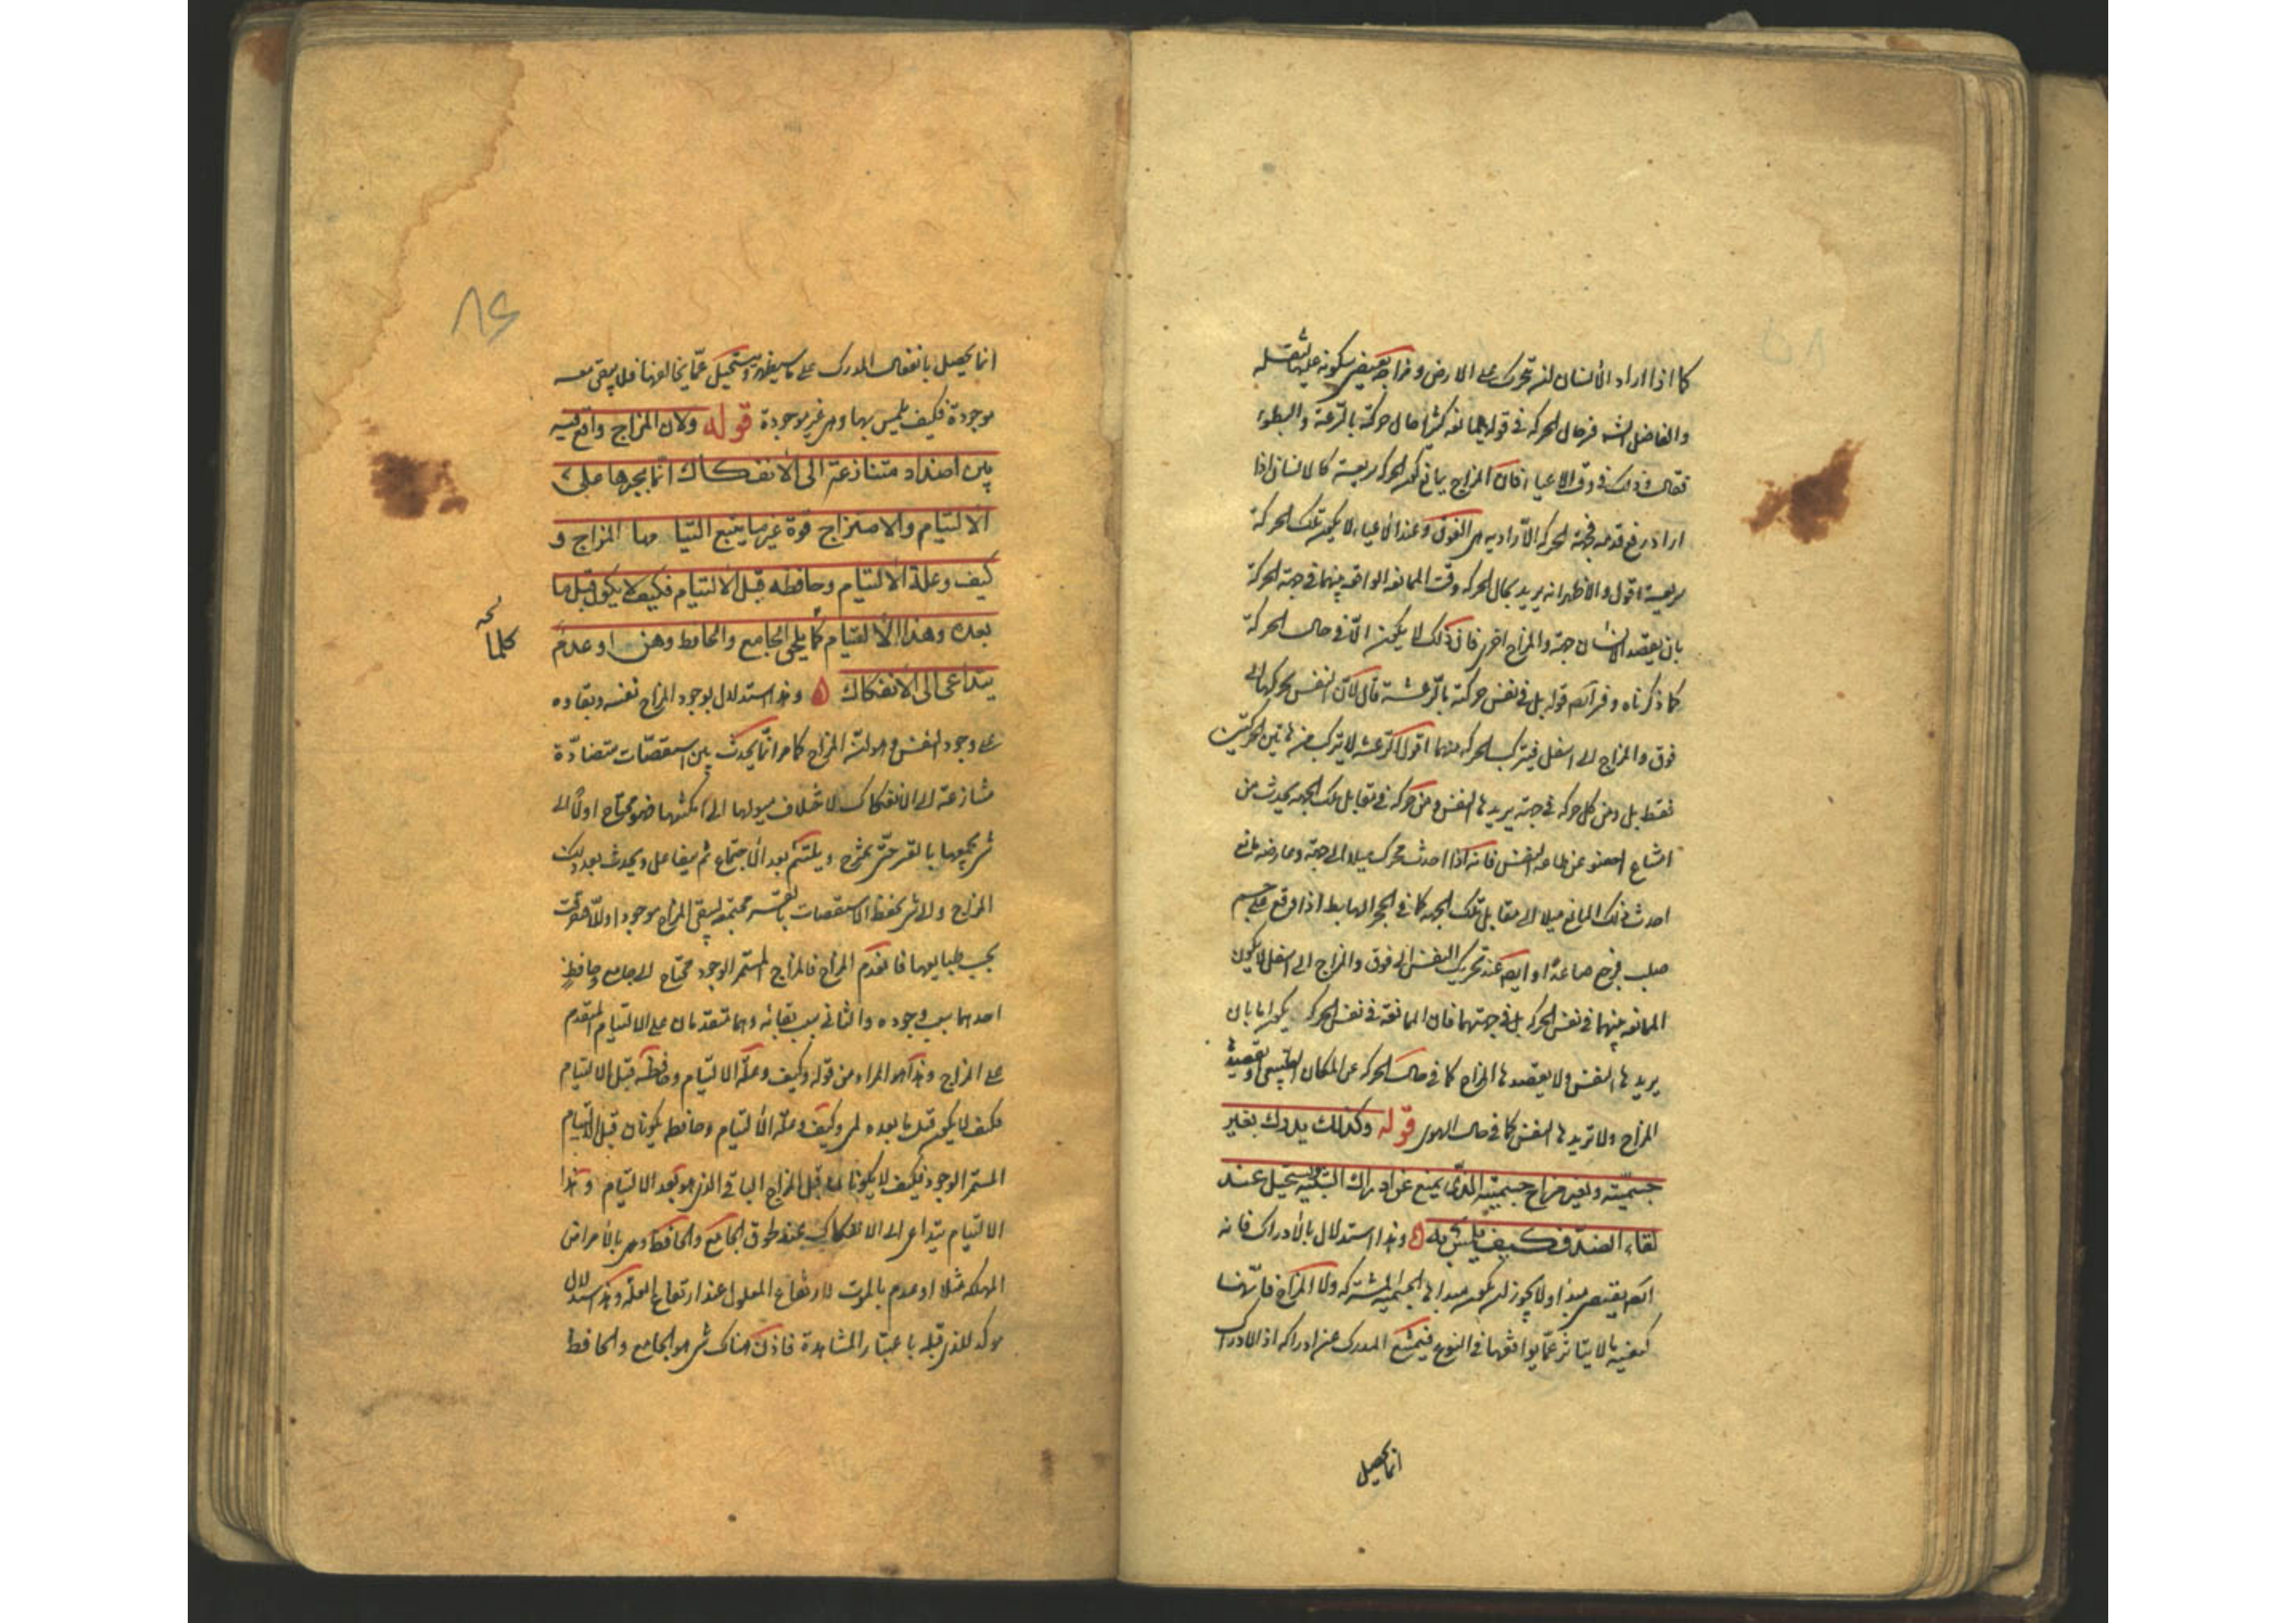 كما اذا اراد الانسان ان يتحرك على الارض و مزاجه يقتضى سكونه عليها لثقله
والفاضل الشه فسر حال الحركة فى قوله ممانعه كثيرا حال حركته بالسرعة والبطوء
فقال و ذلك فى وقت الاعياء فان المزاج يمانع كون الحركة سريعة كالانسان اذا
اراد رفع قدمه فجهة الحركة الارادية هى الفوق و عند الاعياء لا يكون تلك الحركة
سريعة اقول و الاظهر انه يريد بحال الحركة وقت الممانعة الواقعة بينهما فى جهة الحركة
بان يقصد الانسان جهة والمزاج اخرى فان ذلك لا يكون الا فى حال الحركة
كما ذكرناه و فسر ايضه قوله بل فى نفس حركته بالرعشة قال لان النفس يحركها الى
فوق والمزاج الى اسفل فيتركب الحركة منهما اقول الرعشة لا يتركب من هاتين الحركتين
فقط بل و من كل حركة فى جهة يريدها النفس و من حركة فى مقابل تلك الجهة يحدث من
امتناع العضو عن طاعة النفس فانه اذا احدث محرك ميلا الى جهة و عارضه مانع
احدث ذلك المانع ميلا الى مقابل تلك الجهة كما فى الحجر الهابط اذا وقع على جسم
صلب فرجع صاعدا و ايضه عند تحريك النفس الى فوق والمزاج الى اسفل لا يكون
الممانعة بينهما فى نفس الحركة بل فى جهتهما فان الممانعة فى نفس الحركة يكون اما بان
يريدها النفس ولا يقصدها المزاج كما فى حال الحركة عن المكان الطبيعى او يقصدها
المزاج ولا تريدها النفس كما فى حال الهوى قوله وكذلك يدرك بغير
جسميته و بغير مزاج جسميته الذى يمنع عن ادراك الشبيه ويستحيل عند
لقاء الضد فكيف يلمس به و هذا استدلال بالادراك فانه
ايضه يقتضى مبدا ولا يجوز ان يكون مبداها الجسمية المشتركة ولا المزاج فانها
كيفية ما لا يتاثر عما يوافقها فى النوع فيمتنع المدرك عن ادراكه اذ الادراك
انما يحصل
انما يحصل بانفعال المدرك على ما سيظهر ويستحيل عما يخالفها فلا يبقى معه
موجودة فكيف يلمس بها وهى غير موجودة قوله ولان المزاج واقع فيه
بين اضداد متنازعة الى الانفكاك انما يجبرها على
الالتيام والامتزاج قوة غير ما يتبع التيامها المزاج و
كيف وعلة الالتيام وحافظه قبل الالتيام فكيف لا يكون قبل ما
بعده وهذا الالتيام كما يلحق الجامع والحافظ وهن او عدم
كلما
يتداعى الى الانفكاك و هذا استدلال بوجود المزاج نفسه و بقاوه
على وجود النفس وهو ان المزاج كما مر انما يحدث بين اسطقسات متضادة
متنازعة الى الانفكاك لاختلاف ميولها الى امكنتها فهو محتاج اولا الى
شى يجمعها بالقسر حتى يمتزج و يلتئم بعد الاجتماع ثم يتفاعل و يحدث بعد ذلك
المزاج و الى شى يحفظ الاسطقسات بالقسر مجتمعة ليبقى المزاج موجودا و الا تفرقت
بحسب طبايعها فانعدم المزاج فالمزاج المستمر الوجود محتاج الى جامع و حافظ
احدهما سبب وجوده والثانى سبب بقائه وهما متقدمان على الالتيام المتقدم
على المزاج و هذا هو المراد من قوله وكيف و علة الالتيام وحافظه قبل الالتيام
فكيف لا يكون قبل ما بعده اى وكيف و علة الالتيام وحافظه يكونان قبل الالتيام
المستمر الوجود فكيف لا يكونان قبل المزاج الباقى الذى هو بعد الالتيام و هذا
الالتيام يتداعى الى الانفكاك عند لحوق الجامع والحافظ وهن بالامراض
المهلكة مثلا او عدم بالموت لارتفاع المعلول عند ارتفاع العلة و هذا استدلال
موكد للذى قبله باعتبار المشاهدة فاذن هناك شى هو الجامع والحافظ